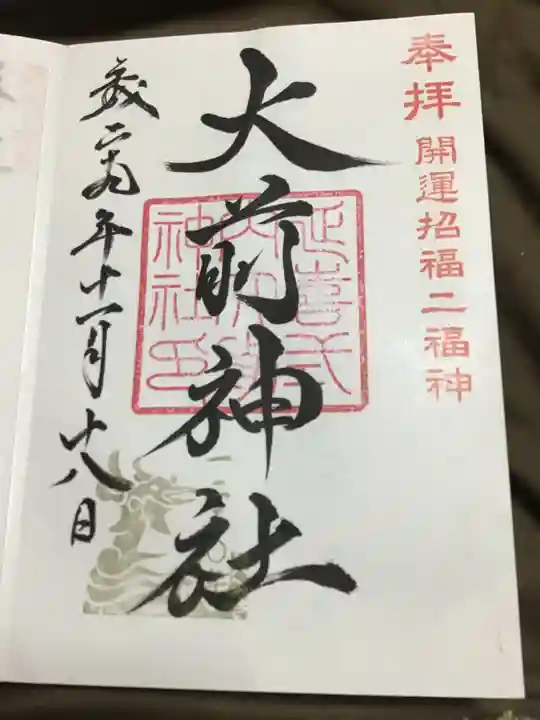 奉拝 開運招福二福神
大前神社
延喜式
神社印
二九年十一月十八日